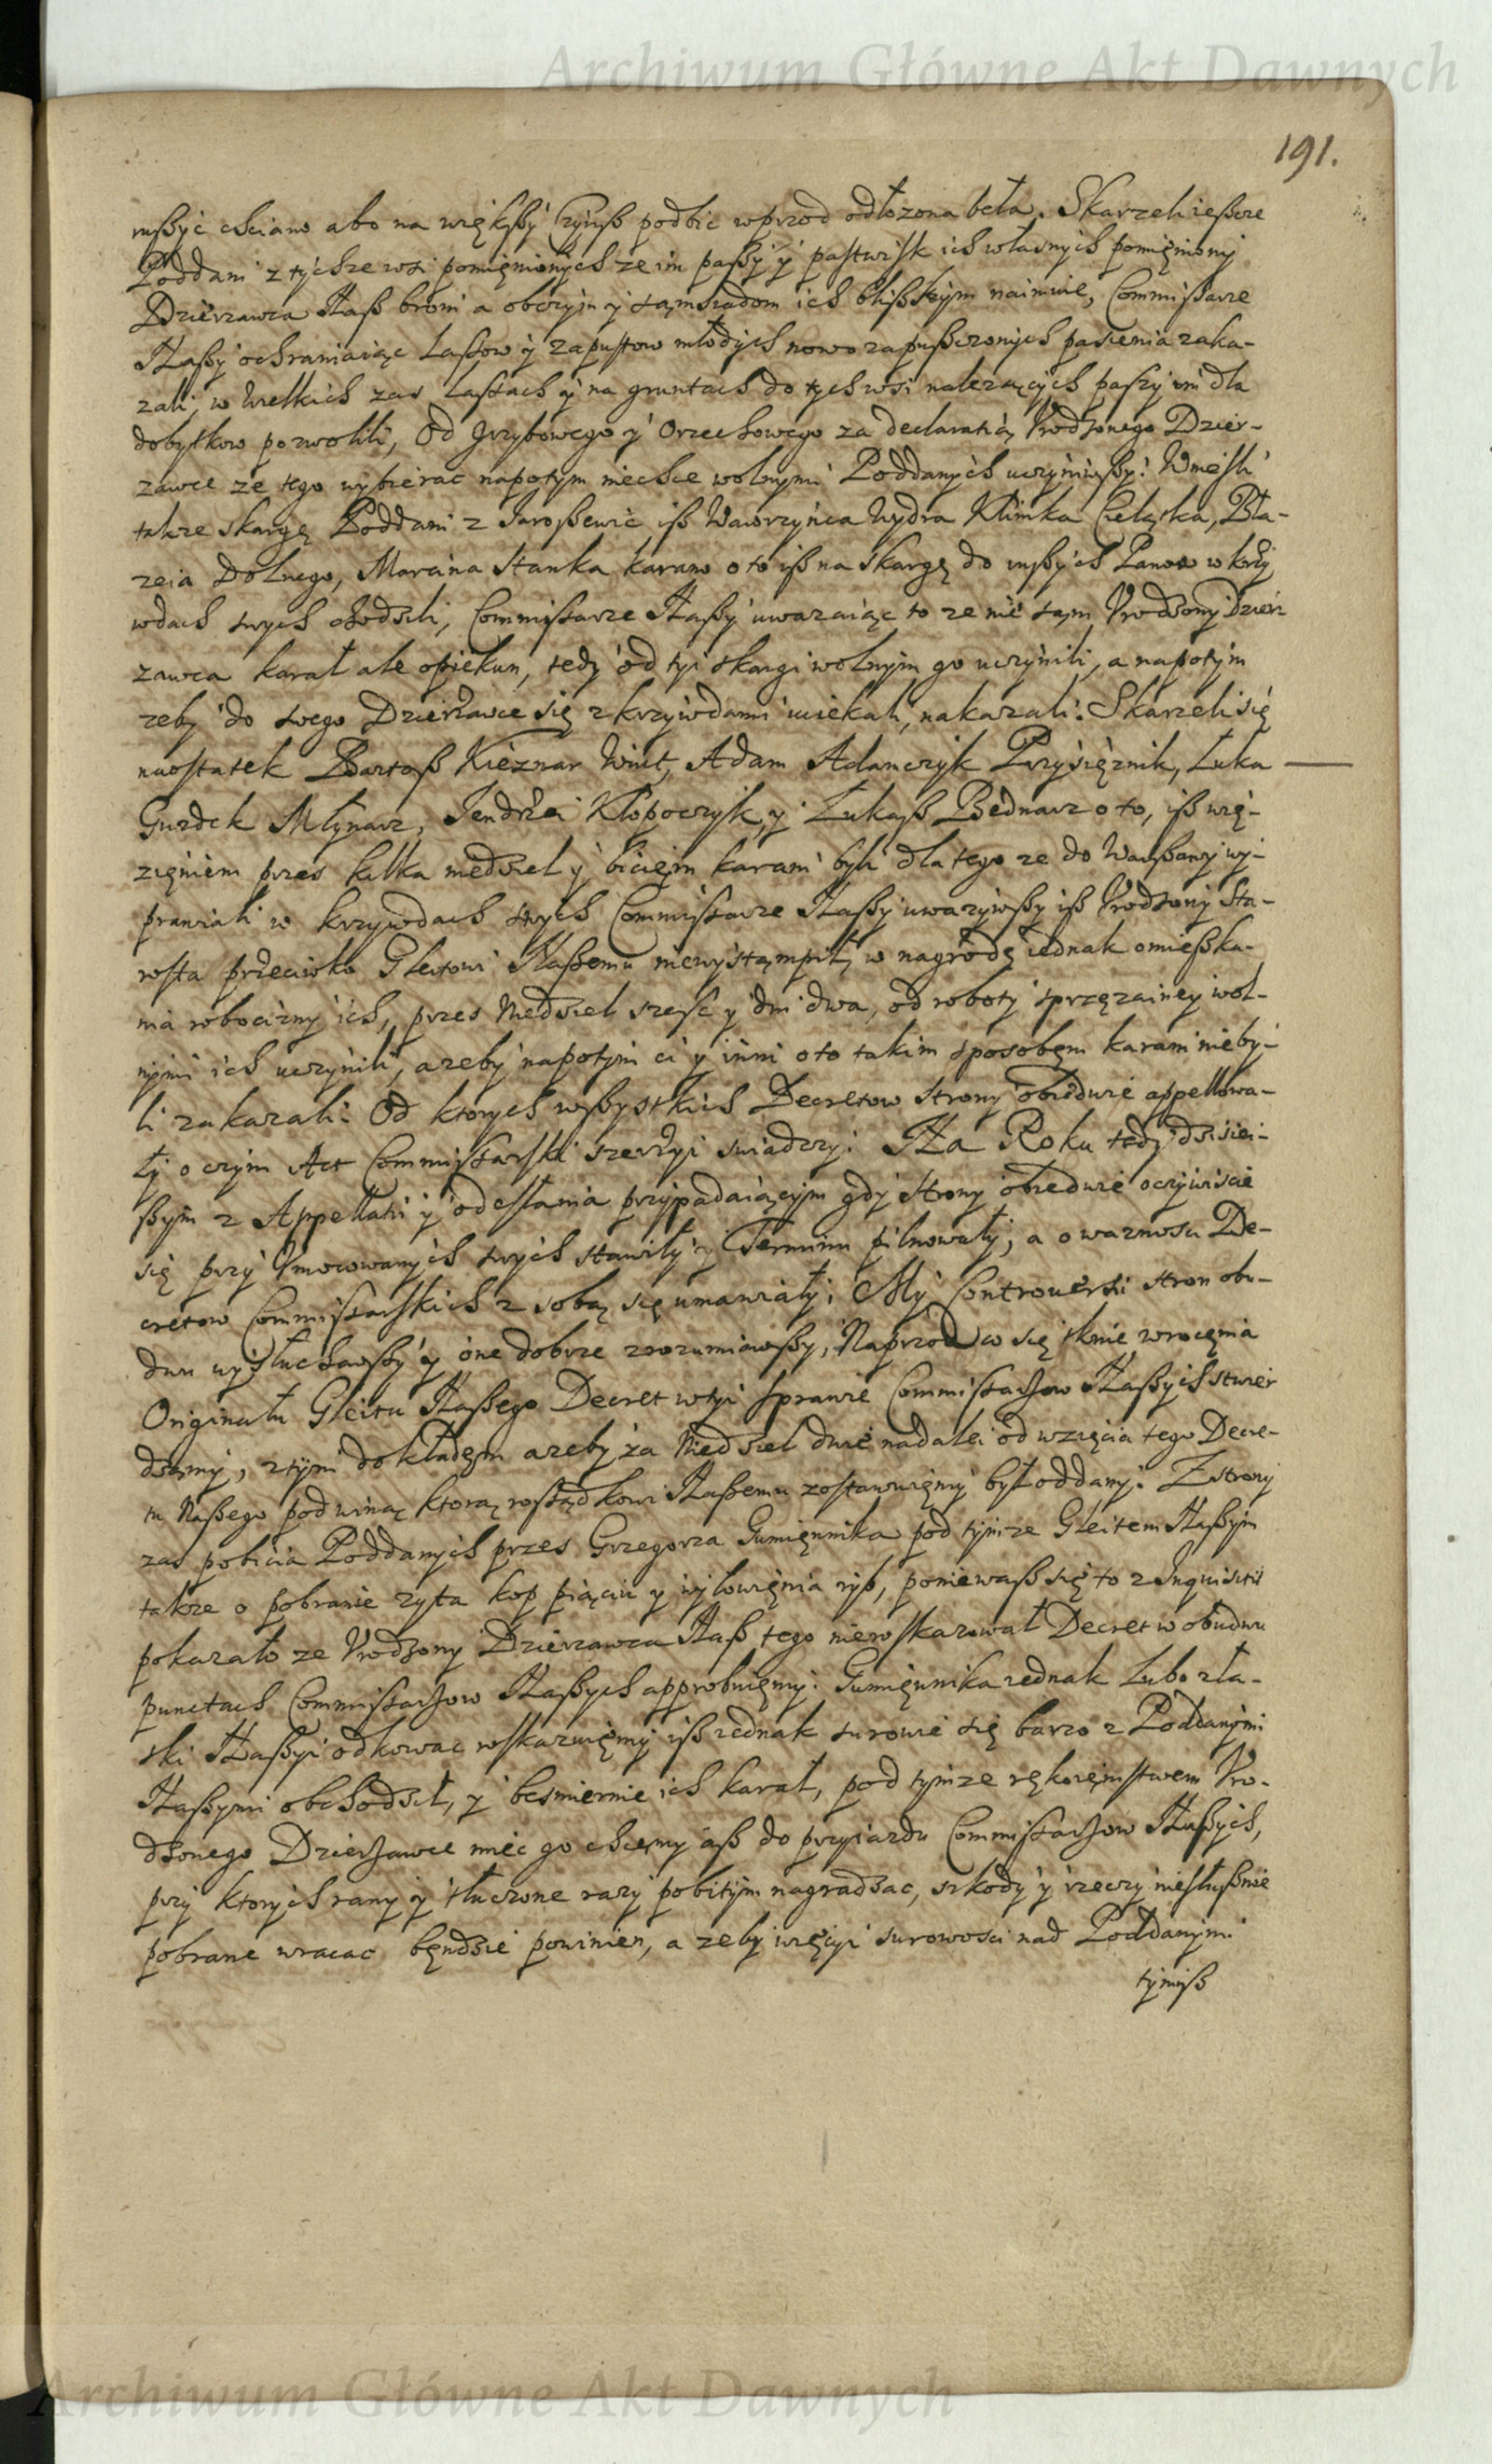 Archiwum Główne Akt Dawnych
191.
rußyć chciano abo na więkßy Czynß podbić wprzod odłozona beła. Skarzeli ießcze
Poddani z tychze wsi pomięnionych ze im paßy y pastwisk ich własnych pomięniony
Dzierzawca Naß broni a obczym y sąmsiadom ich blißßym naimuie, Commißarze
Naßy ochraniaiąc Lassow y zapustow młodych nowo zapußczonych pasienia zaka-
zali, w Wielkich zas Lassach y na gruntach do tych wsi nalezących paszy im dla
dobytkow pozwolili, Od Grzybowego y Orzechowego za declaratią Vrodzonego Dzier-
zawce ze tego wybierac napotym niechce wolnymi Poddanych uczyniwßy. Wnieśli
takze skargę Poddani z Jaroßewic iß Wawrzyńca Wydra Klimka Cieląska, Bła-
zeia Dolnego, Marcina Stanka karano o to iß na skargę do inßych Panow w krzy
wdach swych chodzili, Commissarze Naßy uwazaiąc to ze nie sąm Vrodzony Dzier
zawca karał ale opiekun, tedy od tyi skargi wolnym go uczynili, a napotym
zeby do swego Dzierzawce się z krzywdami uciekali, nakazali. Skarzeli się
nuostatek Bartoß Kieznar Wuit, Adam Adamczyk Przysięznik, Luka
Gurdek Młynarz, Jendrzei Kłopoczyk, y Lukaß Bednarz o to, iß wię-
zięniem przes kilka niedziel y biciem karani byli dla tego ze do Warßawy wy-
prawiali w krzywdach swych Commissarze Naßy uwazywßy iß Vrodzony Sta-
rosta przeciwko Gleitowi Naßemu niewystąmpił, w nagrodę iednak omießka-
nia robocizny ich, przes Niedziel szesc y dni dwa, od roboty sprzęzainey wol-
nymi ich uczynili, a zeby napotym ci y inni o to takim sposobęm karani nieby-
li zakazali. Od ktorych wßystkich Decretow strony obiedwie appellowa-
ły o czym Act Commissarski szerzyi swiadczy. Na Roku tedy dzisiei-
ßym z Appellatii y odesłania przypadaiącym gdy strony obiedwie oczywiscie
się przy Vmocowanych swych stawiły y Terminu pilnowały, a o waznosci De-
cretow Commissarskich z sobą się umawiały. My Controuersii stron obu-
dwu wysłuchawßy y one dobrze zrozumiawßy, Naprzod co się tknie wrocęnia
Originału Gleitu Naßego Decret w tyi sprawie Commissarzow Naßych stwier
dzamy, z tym dokładęm azeby za Niedziel dwie nadalei od wzięcia tego Decre-
tu Naßego pod winą ktorą rossądkowi Naßemu zostawuięmy był oddany. Z strony
zas pobicia Poddanych przes Grzegorza Gumięnnika pod tymze Gleitem Naßym
takze o pobranie zyta kop piąciu y wyłowięnia ryb, poniewaß się to z Inquisitii
pokazało ze Vrodzony Dzierzawca Naß tego nierozkazował Decret w obudwu
punctach Commissarzow Naßych approbuięmy. Gumięnnika iednak Lubo z ła-
ski Naßyi odkowac roskazuięmy iß iednak surowie się barzo z Poddanymi
Naßymi obchodził, y besmiernie ich karał, pod tymze rękoięmstwem Vro-
dzonego Dzierzawce miec go chcęmy aß do przyiazdu Commissarzow Naßych,
przy ktorych rany y tłuczone razy pobitym nagradzac, szkody y rzeczy niesłußnie
pobrane wracac będzie powinien, a zeby więcyi surowosci nad Poddanymi
tymiß
Archiwum Główne Akt Dawnych